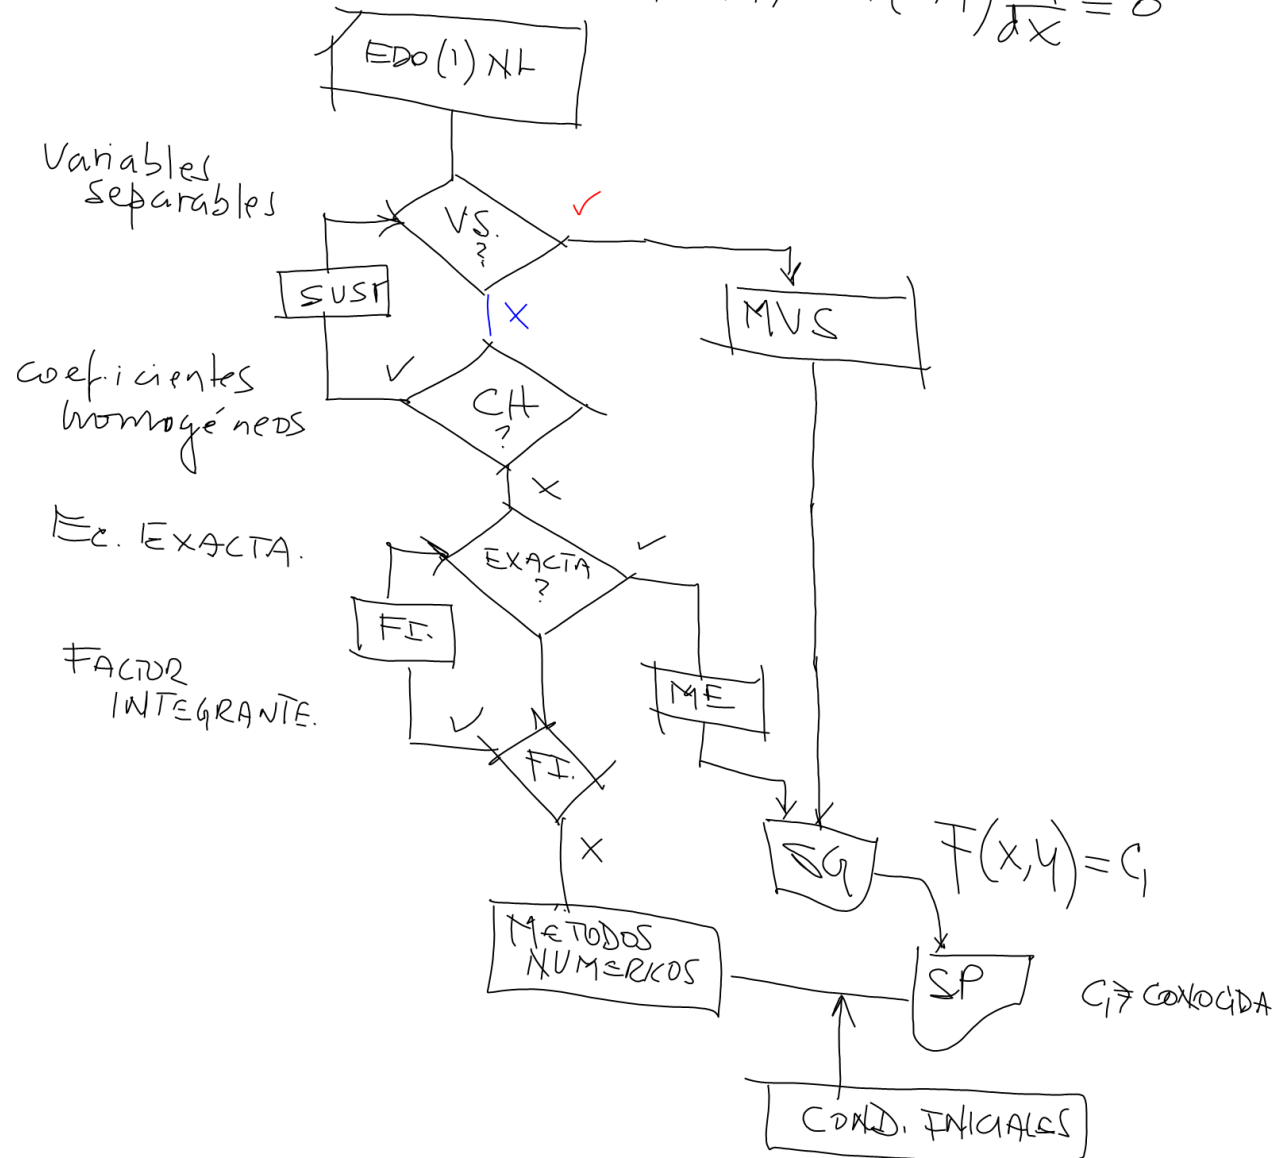 dy/dx = 0
EDO(1) NL
Variables
separables
VS.
?
✓
SUST
X
MVS
✓
Coeficientes
homogéneos
CH
?
X
Ec. EXACTA.
EXACTA
?
✓
FI.
FACTOR
INTEGRANTE.
✓
ME
FI.
X
SG
F(x,y) = C₁
MÉTODOS
NUMERICOS
SP
C₁ ⇒ CONOCIDA
COND. INICIALES